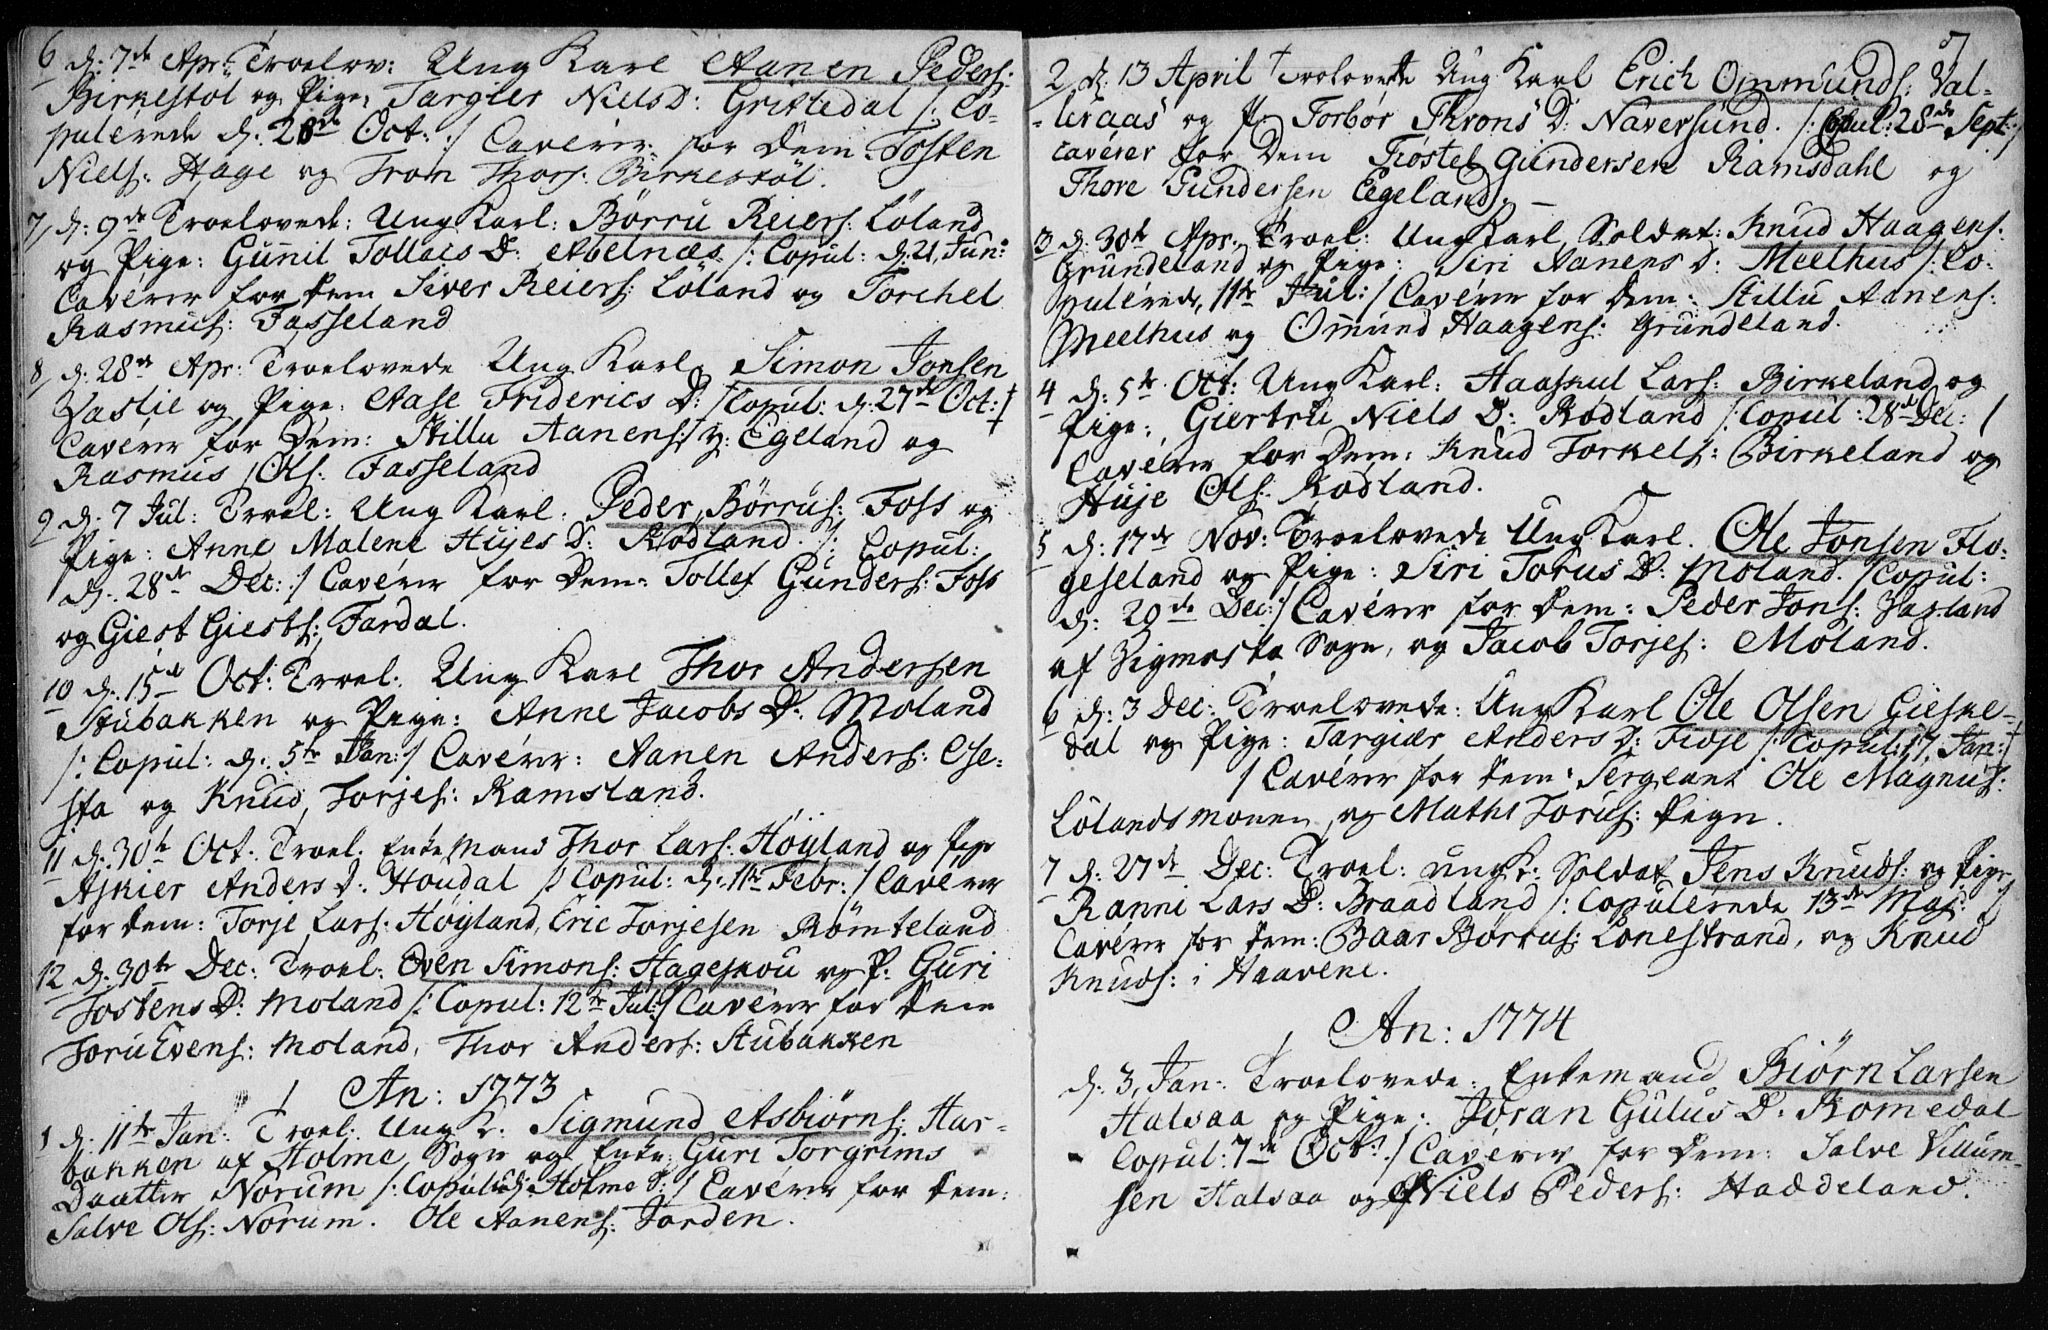 6 d: 7de Apr: Troelov: Ung Karl Aanen Peders:
Birkestol og Pige: Targier Niels D: Grittedal /: Co-
pulerede d: 28de Oct: :/ Caverer for Dem: Tosten
Niels: Hage og Tron Thors: Birkestøl.
7/ d: 9de Troelovede: Ung Karl: Børru Reiers: Løland
og Pige: Gunnil Tollacs D: Abelnæs /: Copul: d: 21, Jun:
Caverer for Dem Siver Reiers: Løland og Torchel
Rasmus: Fasseland
8/ d: 28de Apr: Troelovede Ung Karl, Simon Jonsen
og Pige: Aase Friderics D: /: Copul: d: 27de Oct: /
Caverer for Dem: Stillu Aanens: y: Egeland og
Rasmus Ols: Fasseland
9 d: 7 Jul: Troel: Ung Karl: Peder Børrus: Foss og
Pige: Anne Malene Hujes D: Rødland. /: Copul:
d: 28de Dec: :/ Caverer for Dem: Tollef Gunders: Foss
og Giest Giests: Fardal.
10 d: 15de Oct: Troel: Ung Karl Thor Andersen
Stubakken og Pige: Anne Jacobs D: Moland
/: Copul: d: 5te Jan: / Caverer: Aanen Anders: Ose-
sta og Knud Torjes: Ramsland.
11 d: 30te Oct: Troel: Enke Mand Thor Lars: Høyland og Pige
Askier Anders D: Houdal /: Copul: d: 11te Febr: / Caverer
for dem: Torje Lars: Høyland, Eric Torjesen Rømteland
12 d: 30te Dec: Troel: Oven Simons: Hageskou og P: Guri
Tostens D: Moland /: Copul: 12te Jul: / Caverer for Dem
Toru Evens: Moland, Thor Anders: Stubakken
An: 1773
1 d: 11te Jan: Troel: Ung K: Sigmund Asbiørns: Har-
bakken af Holme Sogn og Enke: Guri Torgrims
Daatter Norum /: Copul: i Holme S: / Caverer for Dem:
Salve Ols: Norum. Ole Aanens: Jorden.
7
2 d: 13 April Troelovede Ung Karl Erich Ommunds: Val-
leraas og P: Torbør Throns D: Naversund. /: Copul: 28de Sept: /
caverer for Dem Trostel Gundersen Ramsdahl og
Thore Gundersen Egeland. —
3 d: 30te Apr: Troel: Ung Karl Soldat: Knud Haagens:
Grundeland og Pige: Siri Aanens D: Meelhus /: Co-
pulerede, 11te Jul: / Caverer for Dem: Stillu Aanens:
Meelhus og Ommund Haagens: Grundeland.
4 d: 5te Oct: Ung Karl: Haaskul Lars: Birkeland og
Pige: Giertru Niels D: Rødland /: Copul: 28de Dec: /
Caverer for Dem: Knud Torkels: Birkeland og
Huje Ols: Rødland.
5 d: 17de Nov: Troelovede Ung Karl. Ole Jonsen Flo-
geseland og Pige: Siri Torus D: Moland. /: Copul:
d: 29de Dec: / Caverer for Dem: Peder Jons:
af Sogn, og Jacob Torjes: Moland.
6 d: 3 Dec: Troelovede: Ung Karl Ole Olsen Gieske-
dal og Pige: Targiær Anders D: Fiose /: Copul: 17, Jan: /
/ Caverer for dem: Sergeant Ole Magnus:
Lølandsmonen, og Maths Torus: Tign.
7 d: 27de Dec: Troel: ung K: Soldat Jens Knuds: og Pige,
Ranni Lars D: Braadland /: Copulerede 13de Maj: /
Caverer for Dem: Baar Børrus: Lonestrand, og Knud
Knuds: i Haavene.
An: 1774
1 d: 3, Jan: Troelovede: Enkemand Biørn Larsen
Halsaa og Pige: Jøran Gulus D: Romedal
Copul: 7de Oct: :/ Caverer for Dem: Salve Villum-
sen Halsaa og Niels Peders: Haddeland.